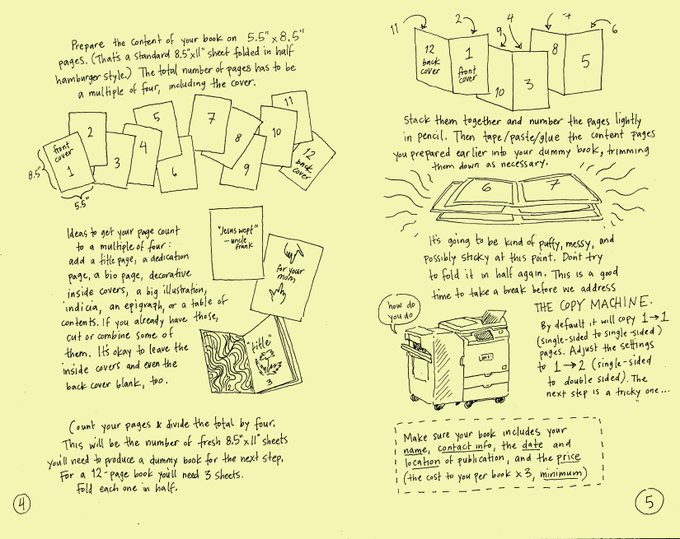 Prepare the content of your book on 5.5" x 8.5"
pages. (That's a standard 8.5"x11" sheet folded in half
hamburger style.) The total number of pages has to be
a multiple of four, including the cover.
front
cover
1
2
3
4
5
6
7
8
9
10
11
12
back
cover
8.5"
5.5"
Ideas to get your page count
to a multiple of four:
add a title page, a dedication
page, a bio page, decorative
inside covers, a big illustration,
indicia, an epigraph, or a table of
contents. If you already have those,
cut or combine some of
them. It's okay to leave the
inside covers and even the
back cover blank, too.
"Jesus wept"
- uncle
frank
for your
mom
"title"
3
Count your pages & divide the total by four.
This will be the number of fresh 8.5"x11" sheets
you'll need to produce a dummy book for the next step.
For a 12-page book you'll need 3 sheets.
Fold each one in half.
4
11
2
9
4
7
6
12
back
cover
1
front
cover
10
3
8
5
Stack them together and number the pages lightly
in pencil. Then tape/paste/glue the content pages
you prepared earlier into your dummy book, trimming
them down as necessary.
6
7
It's going to be kind of puffy, messy, and
possibly sticky at this point. Don't try
to fold it in half again. This is a good
time to take a break before we address
THE COPY MACHINE.
how do
you do
By default it will copy 1→1
(single-sided to single-sided)
pages. Adjust the settings
to 1→2 (single-sided
to double sided). The
next step is a tricky one...
Make sure your book includes your
name, contact info, the date and
location of publication, and the price
(the cost to you per book x 3, minimum)
5